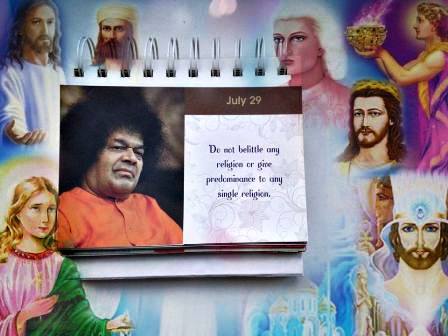 July 29
Do not belittle any
religion or give
predominance to any
single religion.